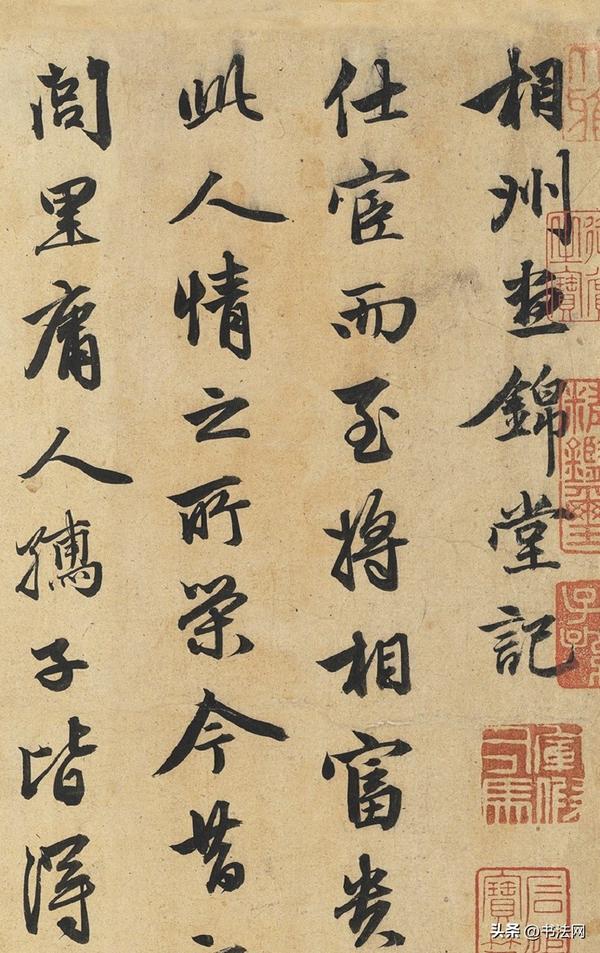 相州晝錦堂記
仕宦而至將相富貴
此人情之所榮今昔
閭里庸人孺子皆得
精鑑璽
头条 @书法网